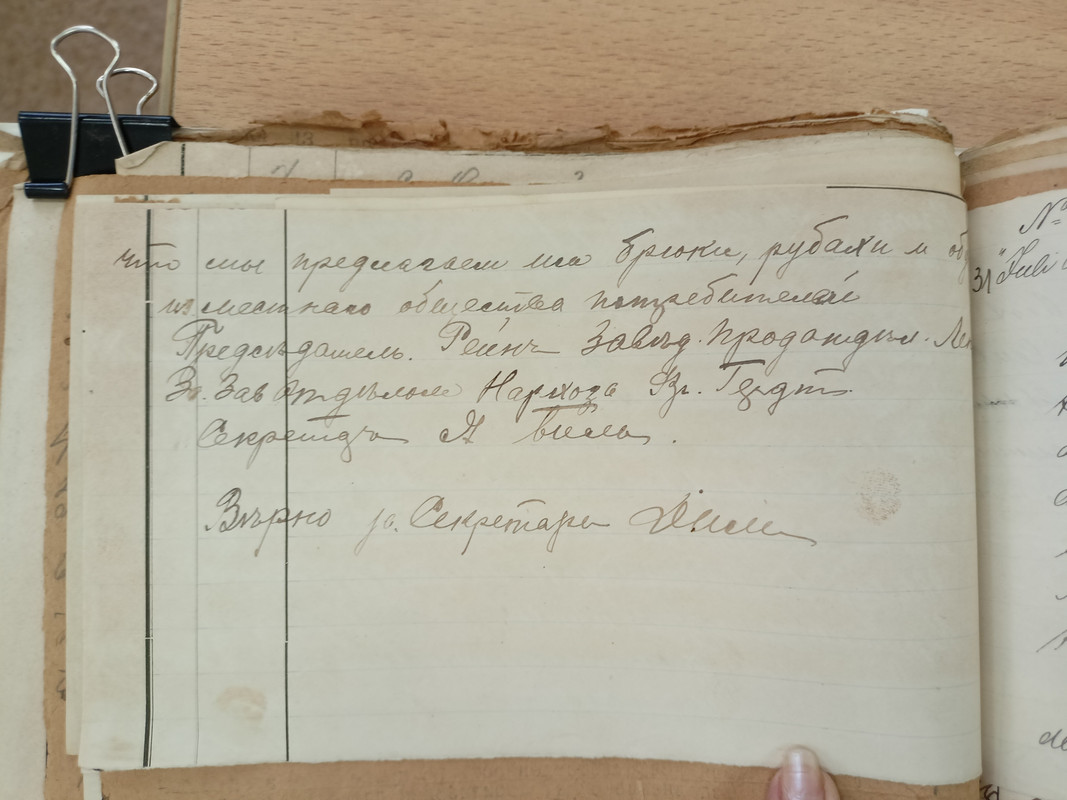 что мы предлагаем им брюки, рубахи и об
из местнаго общества потребителей
Предсѣдатель. Рейнъ Завѣд. Продотдѣл.
За. Зав Отдѣлом Нархоза
Секретарь А
Вѣрно за. Секретарь
№
31 "Juli